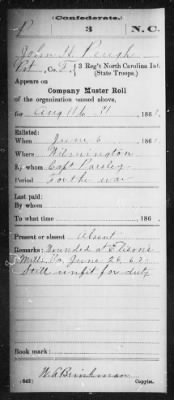 Confederate.
P 3 N.C.
John H. Peugh
Pvt, Co. F, 3 Reg't North Carolina Inf.
(State Troops.)
Appears on
Company Muster Roll
of the organization named above,
for Aug 31, 186
Enlisted:
When June 6, 186
Where Wilmington
By whom Capt Parsley
Period For the war
Last paid:
By whom
To what time , 186
Present or absent Absent
Remarks: Wounded at Elisons
Mills Va, June 26, 62
Still unfit for duty
Book mark:
W S Brinkman
(642) Copyist.